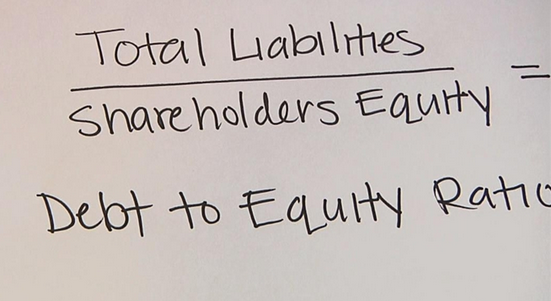 Total Liabilities
Shareholders Equity =
Debt to Equity Ratio